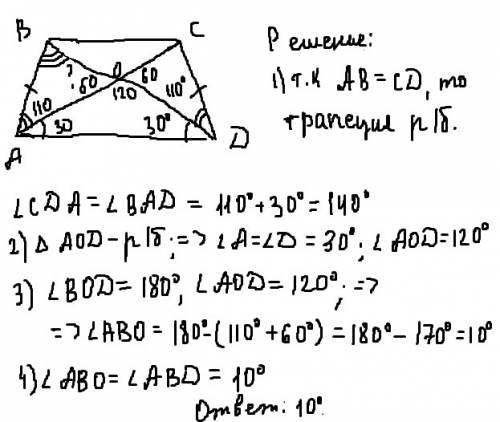 B C
? 60 O 60
110 120 110°
30 30°
A D
Решение:
1) т.к AB = CD, то
трапеция р/б.
∠CDA = ∠BAD = 110° + 30° = 140°
2) Δ AOD - р/б; => ∠A = ∠D = 30°; ∠AOD = 120°
3) ∠BOD = 180°; ∠AOD = 120°; =>
=> ∠ABO = 180° - (110° + 60°) = 180° - 170° = 10°
4) ∠ABO = ∠ABD = 10°
Ответ: 10°